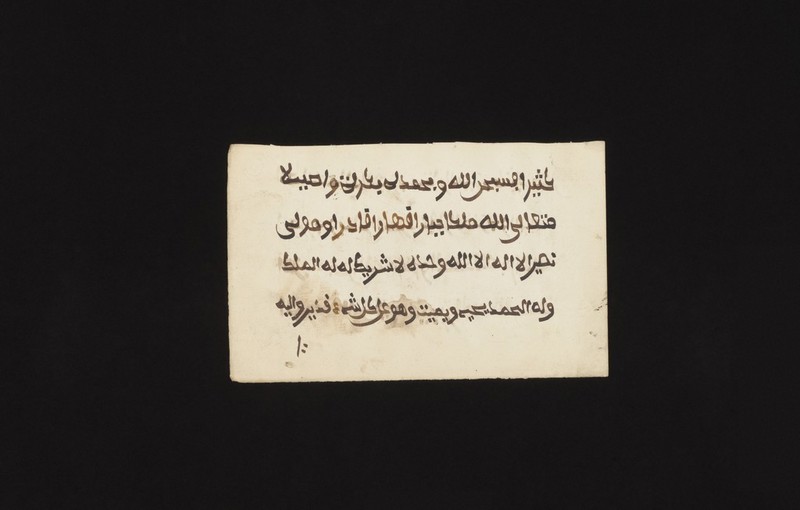 كثيرا فسبحن الله وبحمده بكرة واصيلا
فتعالى الله ملكا جبارا قهارا قادرا وهو لى
نصيرا لا اله الا الله وحده لا شريك له له الملك
وله الحمد يحيي ويميت وهو على كل شيء قدير واليه